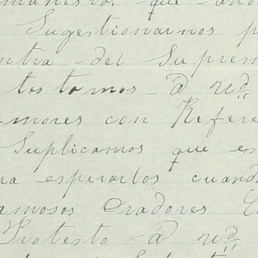 que
Sugestionarnos p
ntra del Suprem
tostamos a ud
mores con Refere
Suplicamos que es
ra esperarlos cuand
rmosos Oradores
Protesto a ud